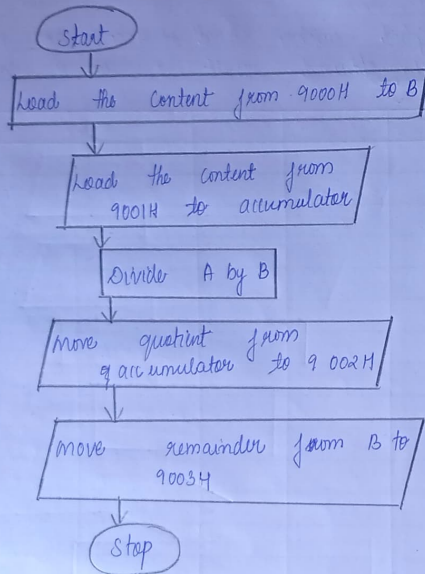 Start
Load the content from 9000H to B
Load the content from
9001H to accumulator
Divide A by B
move quotient from
accumulator to 9002H
move remainder from B to
9003H
Stop